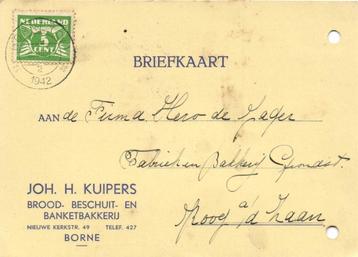 NEDERLAND
3
CENT
1942
BRIEFKAART
AAN de Firma Hero de Jager
Fabriek en Bakkerij
Koog a/d Zaan
JOH. H. KUIPERS
BROOD- BESCHUIT- EN
BANKETBAKKERIJ
NIEUWE KERKSTR. 49 TELEF. 427
BORNE